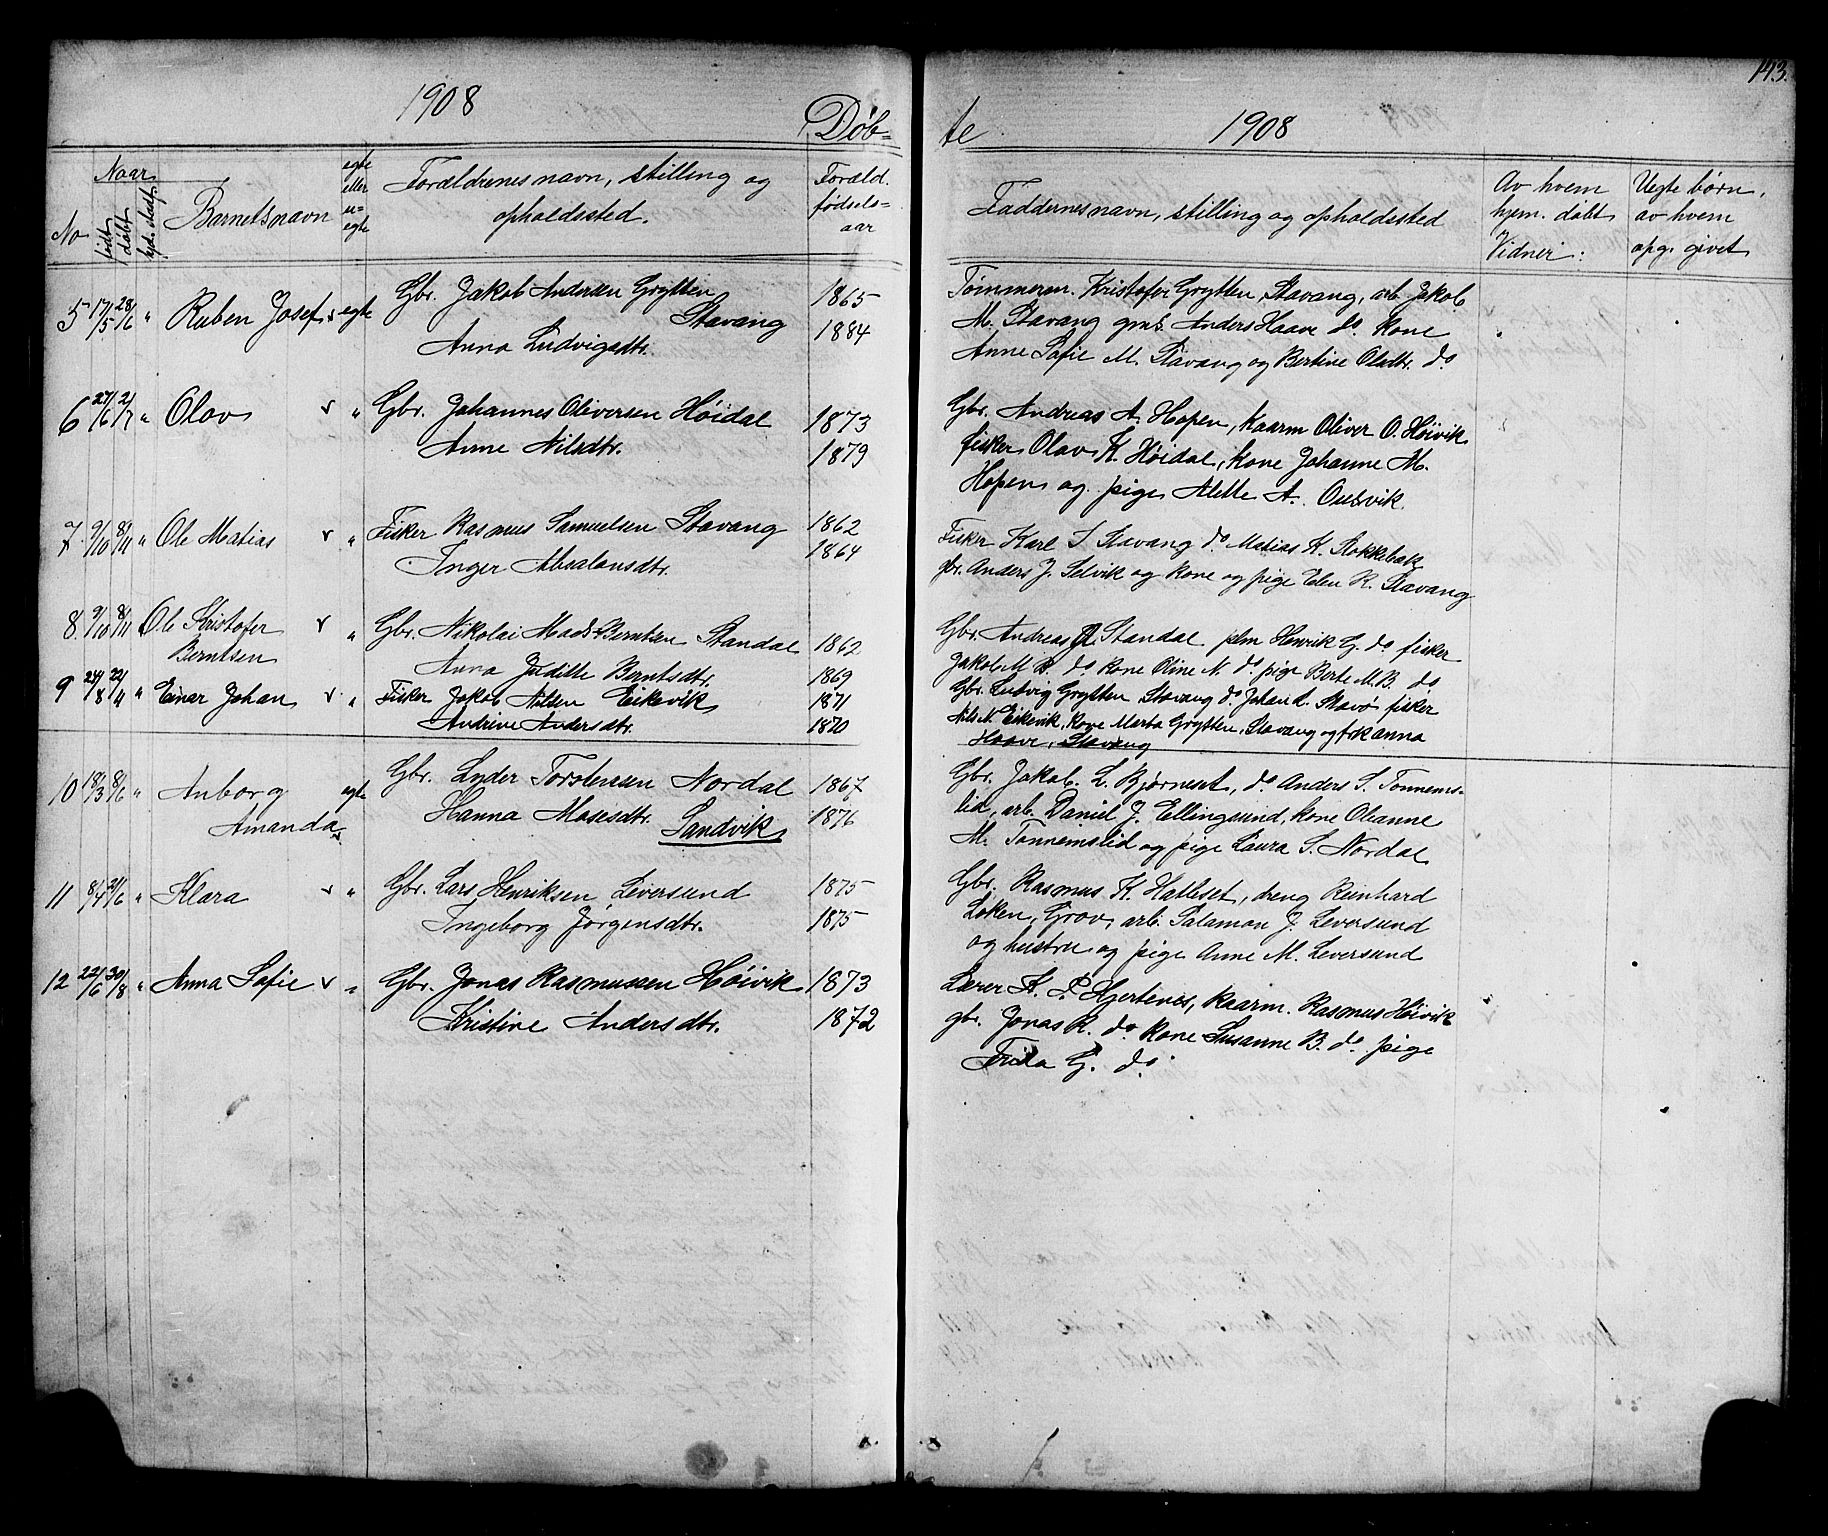 143.
1908
Døb=
te
1908
No
Naar
født
døbt
egte eller u=egte
Barnets navn
Forældrenes navn, stilling og opholdssted.
Foræld. fødsels=aar
Faddernes navn, stilling og opholdssted
Av hvem hjem. døbt Vidner:
Uegte børn, av hvem opg. givet
5 17/5 28/6 " Ruben Josef v egte Gbr. Jakob Andersen Grytten 1865
Stavang
Anna Ludvigsdtr. 1884
Tømmerm. Kristofer Grytten, Stavang, arb. Jakob
M. Stavang gmb. Anders Haave do. kone
Anne Sofie M. Stavang og Bertine Olsdtr. do
6 27/6 2/7 " Olav v " Gbr. Johannes Oliversen Høidal 1873
Anne Nilsdtr. 1879
Gbr. Andreas A. Hopen, kaarm Oliver O. Høivik
fisker Olav K. Høidal, kone Johanne M.
Hopen og pige Alette A.
7 9/10 8/11 " Ole Matias v " Fisker Rasmus Samuelsen Stavang 1862
Inger Absalonsdtr. 1864
Fisker Karl S Stavang do. Matias K. Stokkebak
gbr. Anders J. Selvik og kone og pige Elen R. Stavang
8 9/10 8/11 Ole Kristofer v " Gbr. Nikolai Mads Berntsen Standal 1862
Berntsen
Anna Juditte Berntsdtr. 1869
Gbr. Andreas Standal plm Henrik G. do fisker
Jakob M B do. kone Oline N. do pige Berte M. B. do
9 24/8 22/11 " Einar Johan v " Fisker Jakob Nilsen Eikevik 1871
Andrine Andersdtr. 1870
Gbr. Ludvig Grytten Stavang do. Johan L. Stavø fisker
Nils N. Eikevik, kone Marta Grytten, Stavang og frk Anna
Haave, Stavang
10 18/3 8/6 " Anborg egte Gbr. Lyder Torstensen Nordal 1867
Amanda v
Hanna Mosesdtr. Sandvik 1876
Gbr. Jakob L. Bjørneset, do Anders S. Tonnems=
lid, arb. Daniel J. Ellingsund, kone Olianne
M. Tonnemslid og pige Laura S. Nordal
11 8/4 31/6 " Klara v " Gbr. Lars Henriksen Leversund 1875
Ingeborg Jørgensdtr. 1875
Gbr. Rasmus K. Hatleset, dreng Reinhard
Løken, Grov, arb. Salamon J. Leversund
og hustru og pige Anne M. Leversund
12 22/6 30/8 " Anna Sofie v " Gbr. Jonas Rasmussen Høivik 1873
Kristine Andersdtr. 1872
Lærer K. P. Hjertenes, kaarm. Rasmus Høivik
gbr. Jonas R. do kone Susanne B. do. pige
Frida G. do